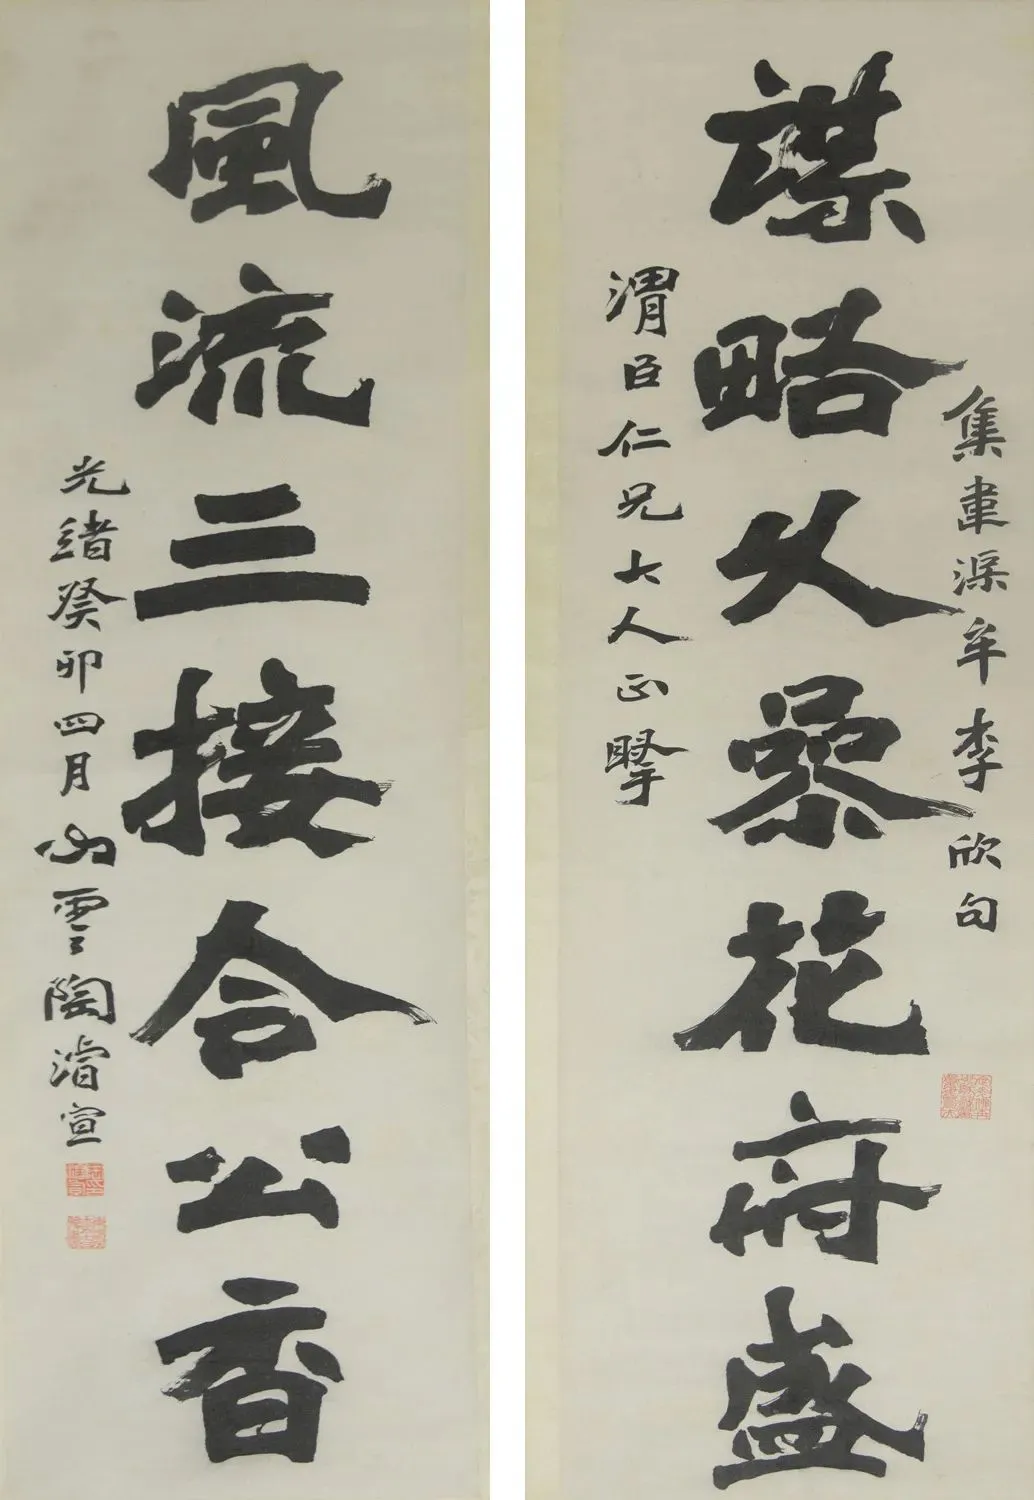 集韋渠牟李欣句
謀略久參花府盛
渭臣仁兄大人正掔
風流三接令公香
光緒癸卯四月心雲陶濬宣